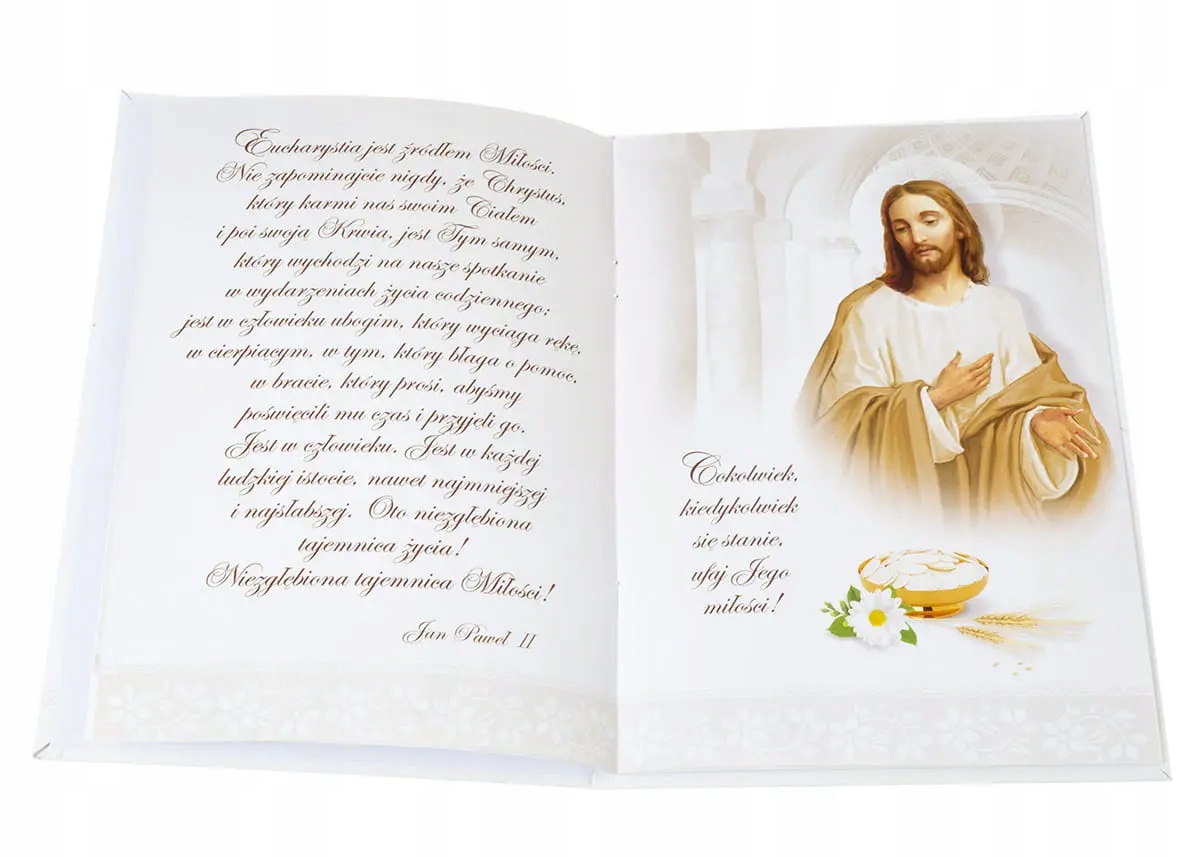 Eucharystia jest źródłem Miłości.
Nie zapominajcie nigdy, że Chrystus,
który karmi nas swoim Ciałem
i poi swoją Krwią, jest Tym samym,
który wychodzi na nasze spotkanie
w wydarzeniach życia codziennego;
jest w człowieku ubogim, który wyciąga rękę,
w cierpiącym, w tym, który błaga o pomoc,
w bracie, który prosi, abyśmy
poświęcili mu czas i przyjęli go.
Jest w człowieku. Jest w każdej
ludzkiej istocie, nawet najmniejszej
i najsłabszej. Oto niezgłębiona
tajemnica życia!
Niezgłębiona tajemnica Miłości!
Jan Paweł II
Cokolwiek,
kiedykolwiek
się stanie,
ufaj Jego
miłości!